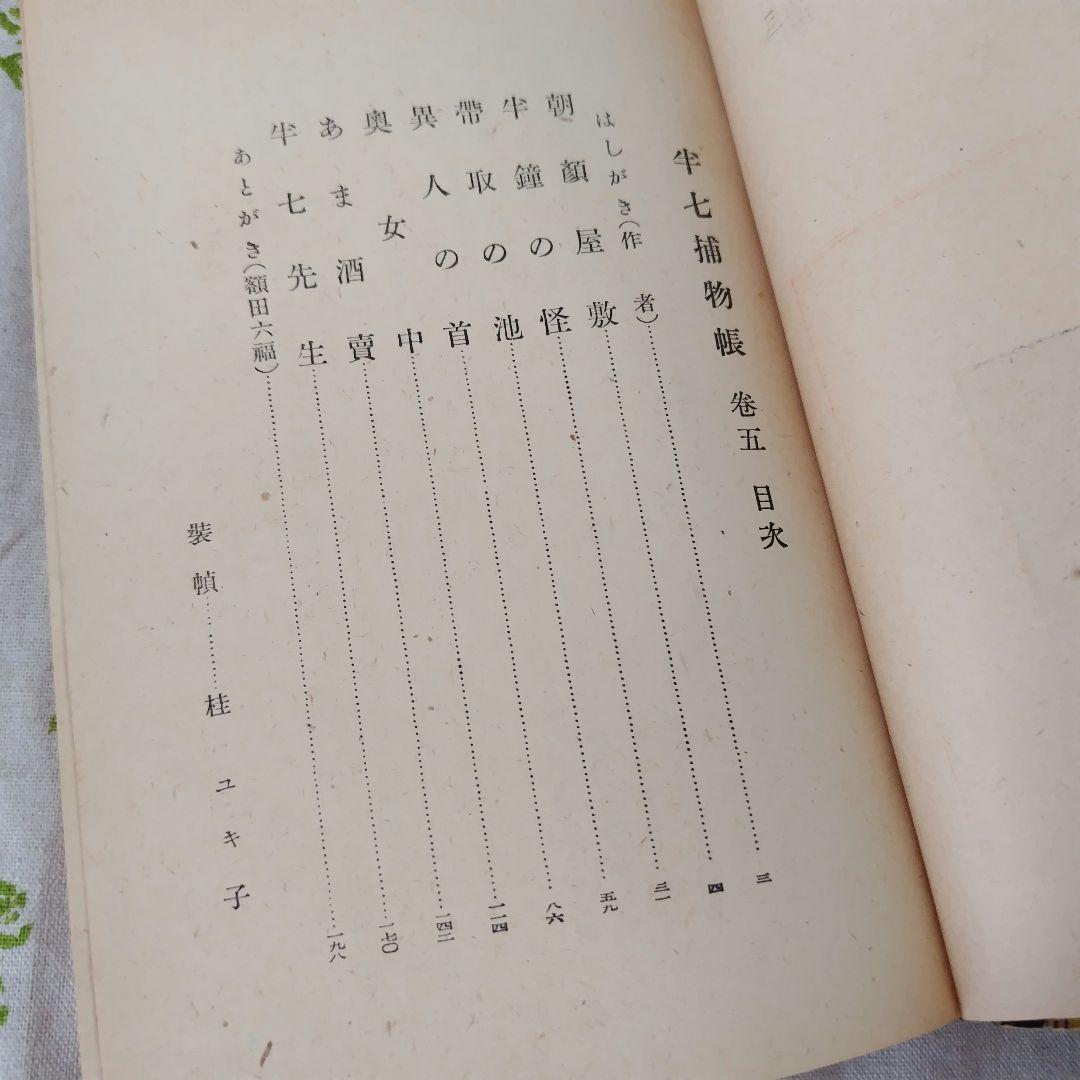 半七捕物帳 卷五 目次
はしがき(作者)…………三
朝顔屋敷…………四
半鐘の怪…………三一
帶取の池…………五九
異人の首…………八六
奥女中…………一一四
あま酒賣…………一四二
半七先生…………一七〇
あとがき(額田六福)…………一九八
裝幀………桂ユキ子